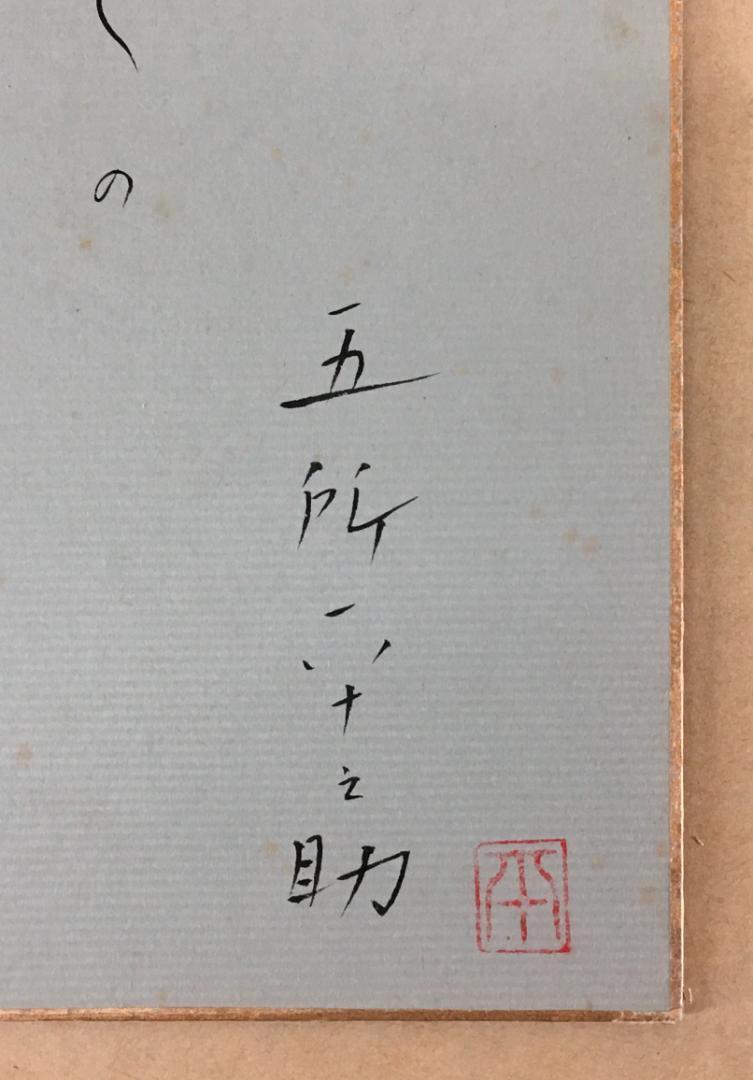 五所平之助
平
の